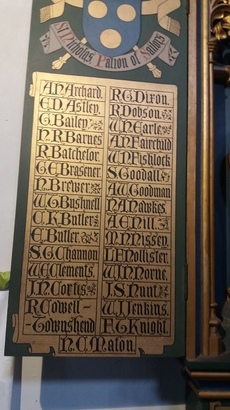 St Nicholas Patron of Sailors
A.P. Archard.
E.D. Astley.
G. Bailey.
D.R. Barnes
R. Batchelor.
G.E. Brasener.
D. Brewer.
W.G. Bushnell
C.K. Butler
E. Butler.
S.G. Channon
W.G. Clements.
J.N. Cortis.
R. Cowell-
-Townshend
R.G. Dixon.
R. Dobson.
W.N. Earle.
A.N. Fairchild
W.N. Fishlock
S. Goodall
A.W. Goodman
D.A. Hawkes.
A.E. Hill.
D.N. Hissey.
L.F. Hollister.
W.J. Horne.
J.S. Hunt.
W.J. Jenkins.
F.G. Knight.
N.C. Malon.